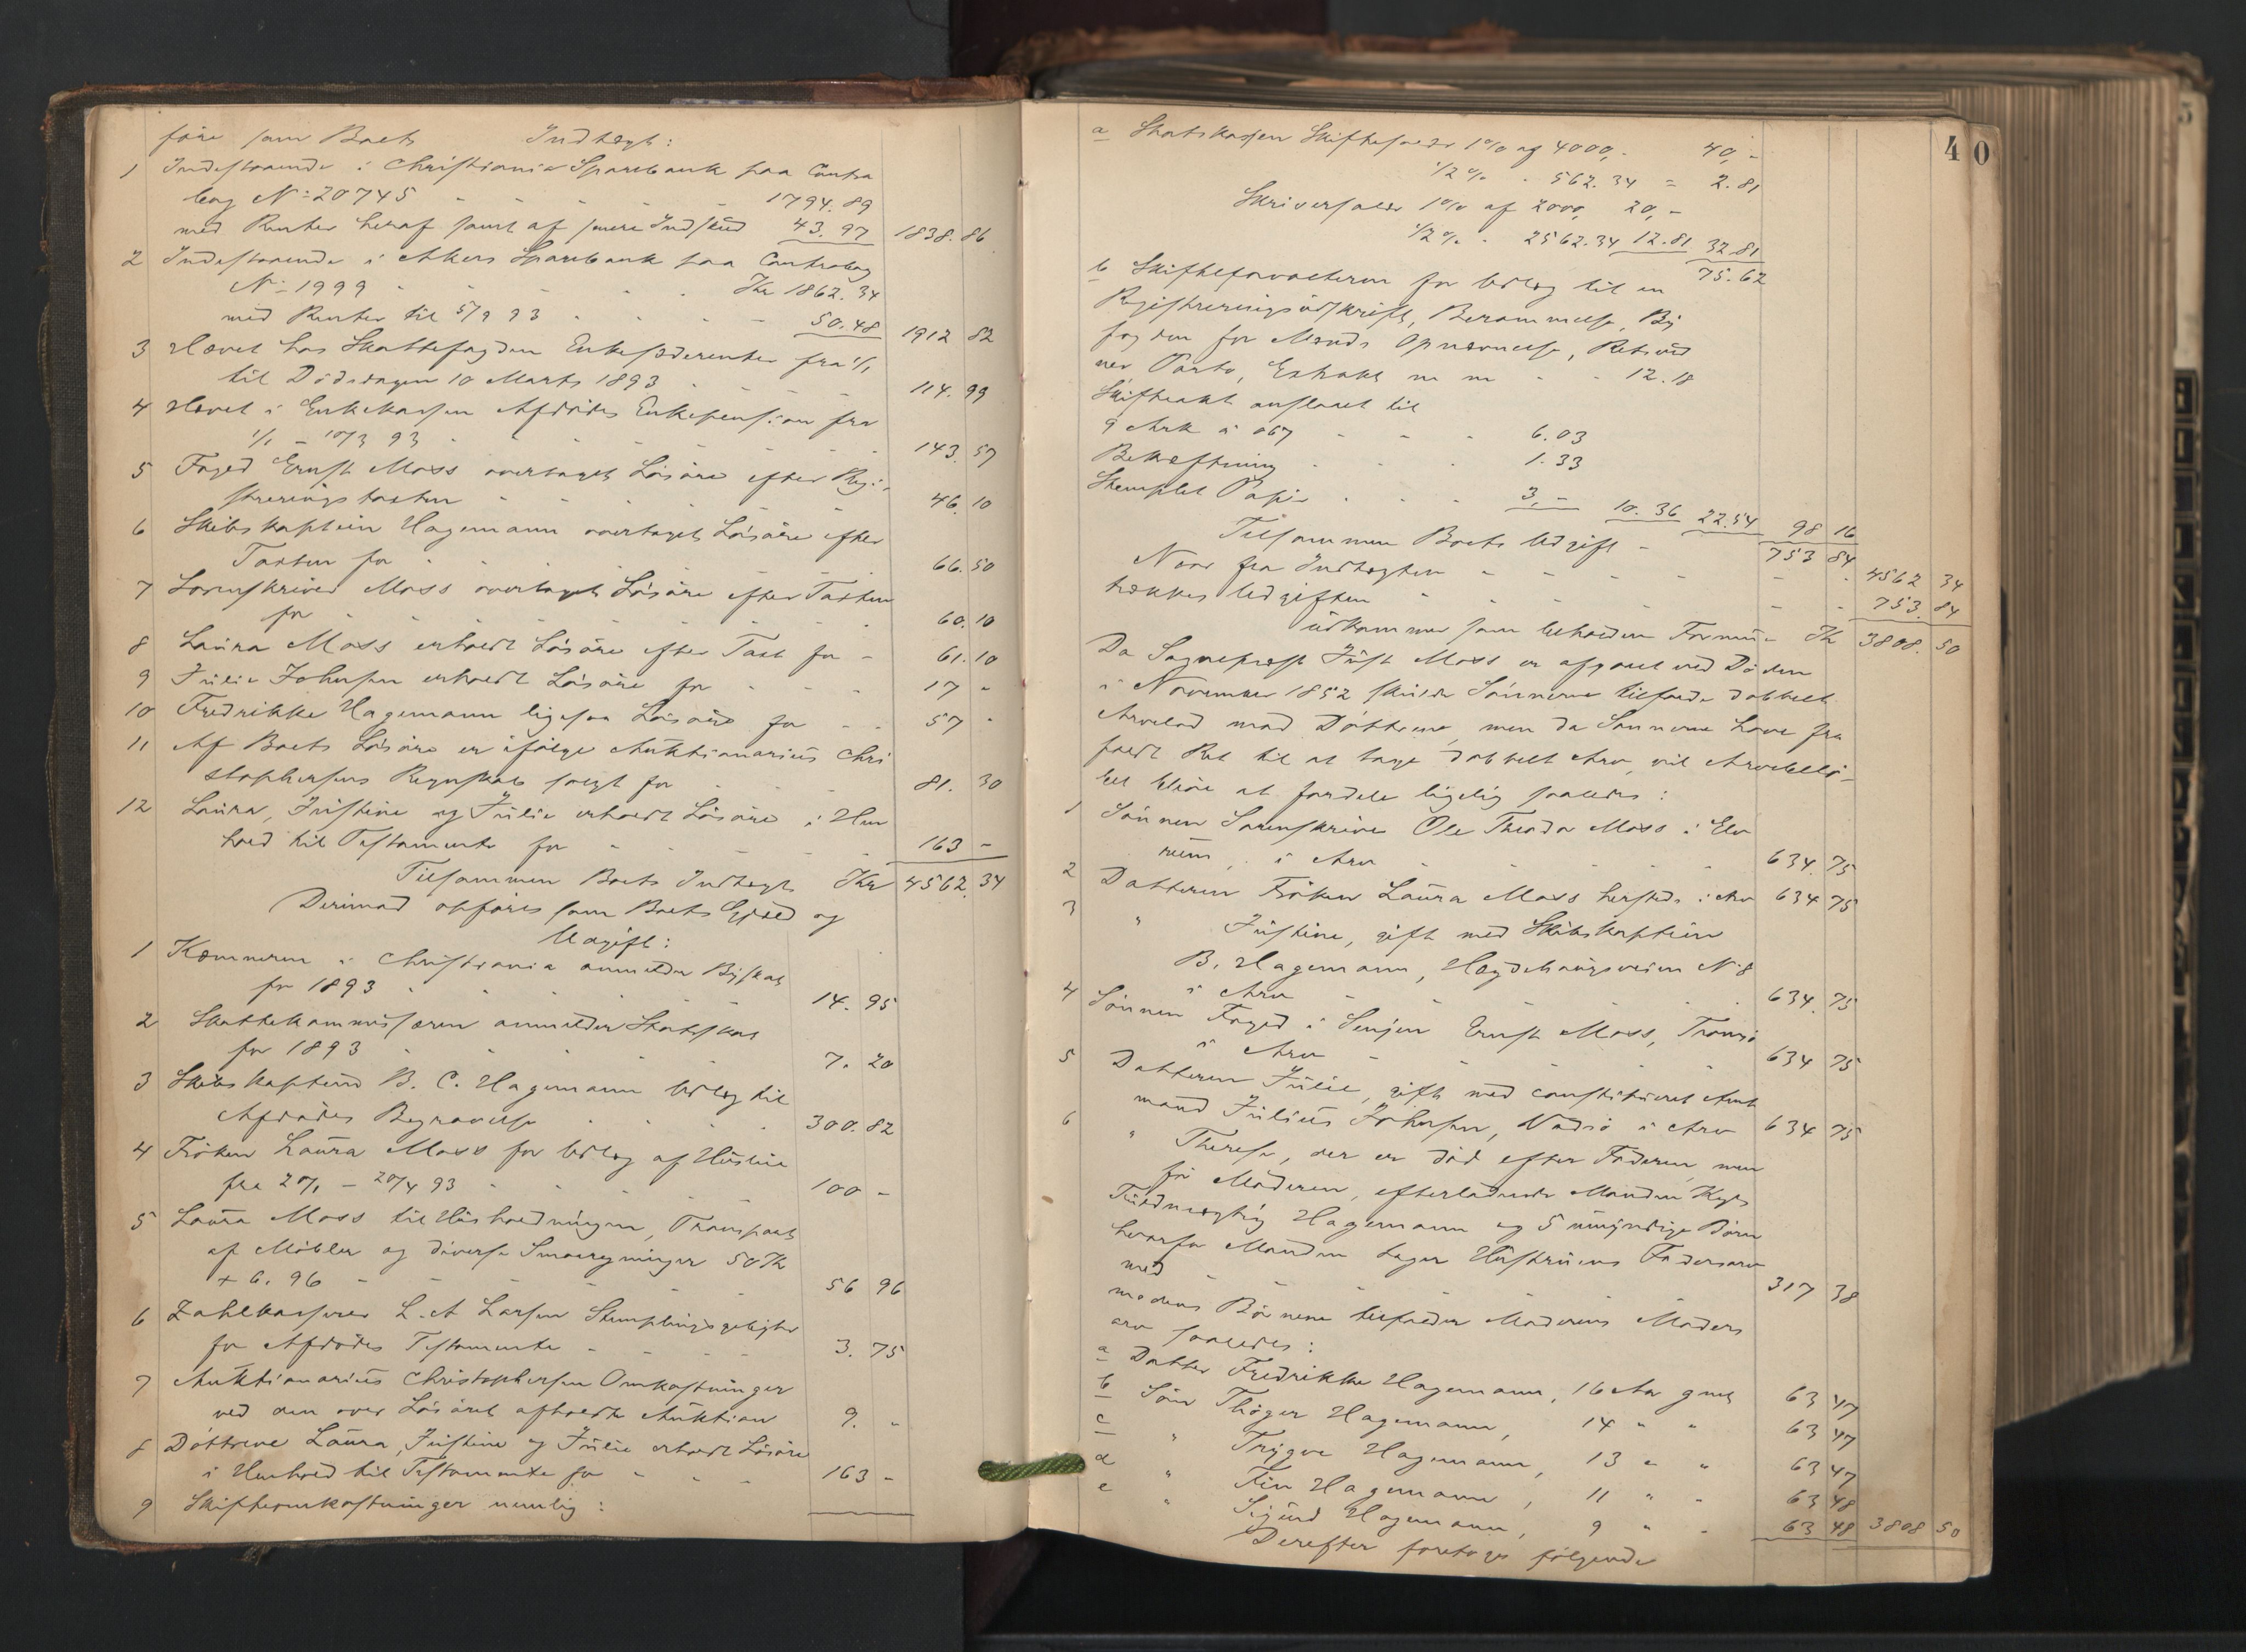 føre som Boets Indtægt:
1 Indestaaende i Christiania Sparebank paa Contra
bog N: 20745 - - - - 1794.89
med Renter heraf samt af senere Indskud 43.97 1838.86
2 Indestaaende i Akers Sparebank paa Contrabog
N: 1999 - - - Kr 1862.34
med Renter til 5/9 93 - - - 50.48 1912 82
3 Hævet hos Skattefogden Enkesæderenter fra 1/1
til Dødsdagen 10 Marts 1893 - - - 114.99
4 Hævet i Enkekassen Afdødes Enkepension fra
1/1 - 10/3 93 - - - 143.57
5 Foged Ernst Moss overtaget Løsøre efter Regi-
streringstaxten - - - 46.10
6 Skibskaptein Hagemann overtaget Løsøre efter
Taxten for - - - 66.50
7 Sorenskriver Moss overtaget Løsøre efter Taxten
for - - - 60.10
8 Laura Moss erholdt Løsøre efter Taxt for - 61.10
9 Julie Johnsen erholdt Løsøre for - - - 17 -
10 Fredrikke Hagemann ligesaa Løsøre for - - 57 -
11 Af Boets Løsøre er ifølge Auktionarius Chri
stophersens Regnskab solgt for - - - 81.30
12 Laura, Justine og Julie erholdt Løsøre i Hen
hold til Testamente for - - - 163 -
Tilsammen Boets Indtægt Kr 4562.34
Derimod opføres som Boets Gjæld og
Udgift:
1 Kæmneren i Christiania anmelder Byskat
for 1893 - - - 14.95
2 Skattekommissæren anmelder Statsskat
for 1893 - - - 7.20
3 Skibskaptein B. C. Hagemann Udlæg til
Afdødes Begravelse - - - 300.82
4 Frøken Laura Moss for Udlæg af Husleie
fra 20/1 - 20/4 93 - - - 100 -
5 Laura Moss til Husholdningen, Transport
af Møbler og diverse Smaaregninger 50 Kr
+ 6.96 - - - 56 96
6 Zahlkasserer L. A Larsen Stemplingsgebyhr
for Afdødes Testamente - - - 3.75
7 Auktionarius Christophersen Omkostninger
ved den over Løsøret afholdte Auktion 9. -
8 Døttrene Laura, Justine og Julie erholdt Løsøre
i Henhold til Testamente for - - - 163 -
9 Skifteomkostninger nemlig:
40
a Statskassen Skiftesalær 1% af 4000,- 40,-
1/2 % - 562.34 = 2.81
Skriversalær 1% af 2000, 20,-
1/2 % - 2562.34 12.81 32.81
75.62
b Skifteforvalteren for Udlæg til en
Registreringsudskrift, Berammelse, By
fogden for Mænds Opnævnelse, Retsvid
ner Porto, Extrakt m m - - 12.18
Skifteakt anslaaet til
9 Ark á 067 - - - 6.03
Bekræftning - - - 1.33
Stemplet Papir - - - 3,- 10.36 22.54 98 16
Tilsammen Boets Udgift - 753 84
Naar fra Indtægten - - - 4562 34
trækkes Udgiften - - - 753.84
udkommer som beholden Formue Kr 3808.50
Da Sogneprest Just Moss er afgaaet ved Døden
i November 1852 skulde Sønnerne tilfalde dobbelt
Arvelod mod Døttrene, men da Sønnerne have fra
faldt Ret til at tage dobbelt Arv, vil Arvebelø-
bet blive at fordele ligelig saaledes:
1 Sønnen Sorenskriver Ole Theodor Moss i Elve
rum, i Arv - - - 634.75
2 Datteren Frøken Laura Moss hersteds i Arv 634 75
3 " Justine, gift med Skibskaptein
B. Hagemann, Hægdehaugsveien N: 8
i Arv - - - 634.75
4 Sønnen Foged i Senjen Ernst Moss, Tromsø
i Arv - - - 634 75
5 Datteren Julie, gift med constitueret Amt
mand Julius Johnsen, Vadsø i Arv 634 75
6 " Therese, der er død efter Faderen, men
før Moderen, efterladende Manden, Kgl.
Fuldmægtig Hagemann og 5 umyndige Børn
hvorfor Manden tager Hustruens Fadersarv
med - - - 317 38
medens Børnene tilfalder Moderens Moders
arv saaledes:
a Datter Fredrikke Hagemann, 16 Aar gml 63 47
b Søn Thøger Hagemann, 14 " " 63 47
c " Trygve Hagemann, 13 " " 63 47
d " Fin Hagemann, 11 " " 63 48
e " Sigurd Hagemann, 9 " " 63 48 3808 50
Derefter foretoges følgende